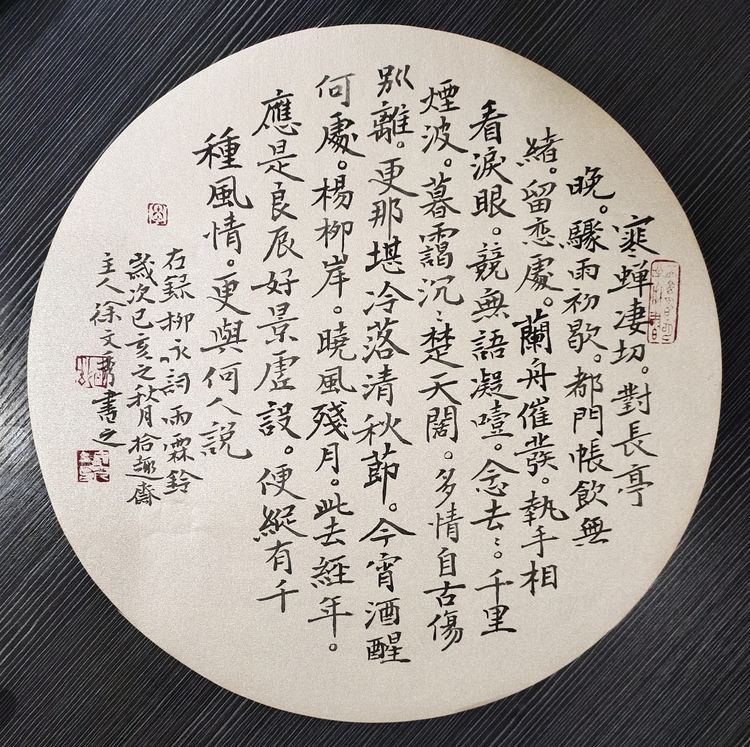 寒蟬淒切。對長亭
晚。驟雨初歇。都門帳飲無
緒。留恋處。蘭舟催發。執手相
看淚眼。競無語凝噎。念去〻。千里
煙波。暮靄沉〻楚天闊。多情自古傷
別離。更那堪冷落清秋節。今宵酒醒
何處。楊柳岸。曉風殘月。此去經年。
應是良辰好景虛設。便縱有千
種風情。更與何人説
右録柳永詞雨霖鈴
歲次己亥之秋月拾趣齋
主人徐文勇書之